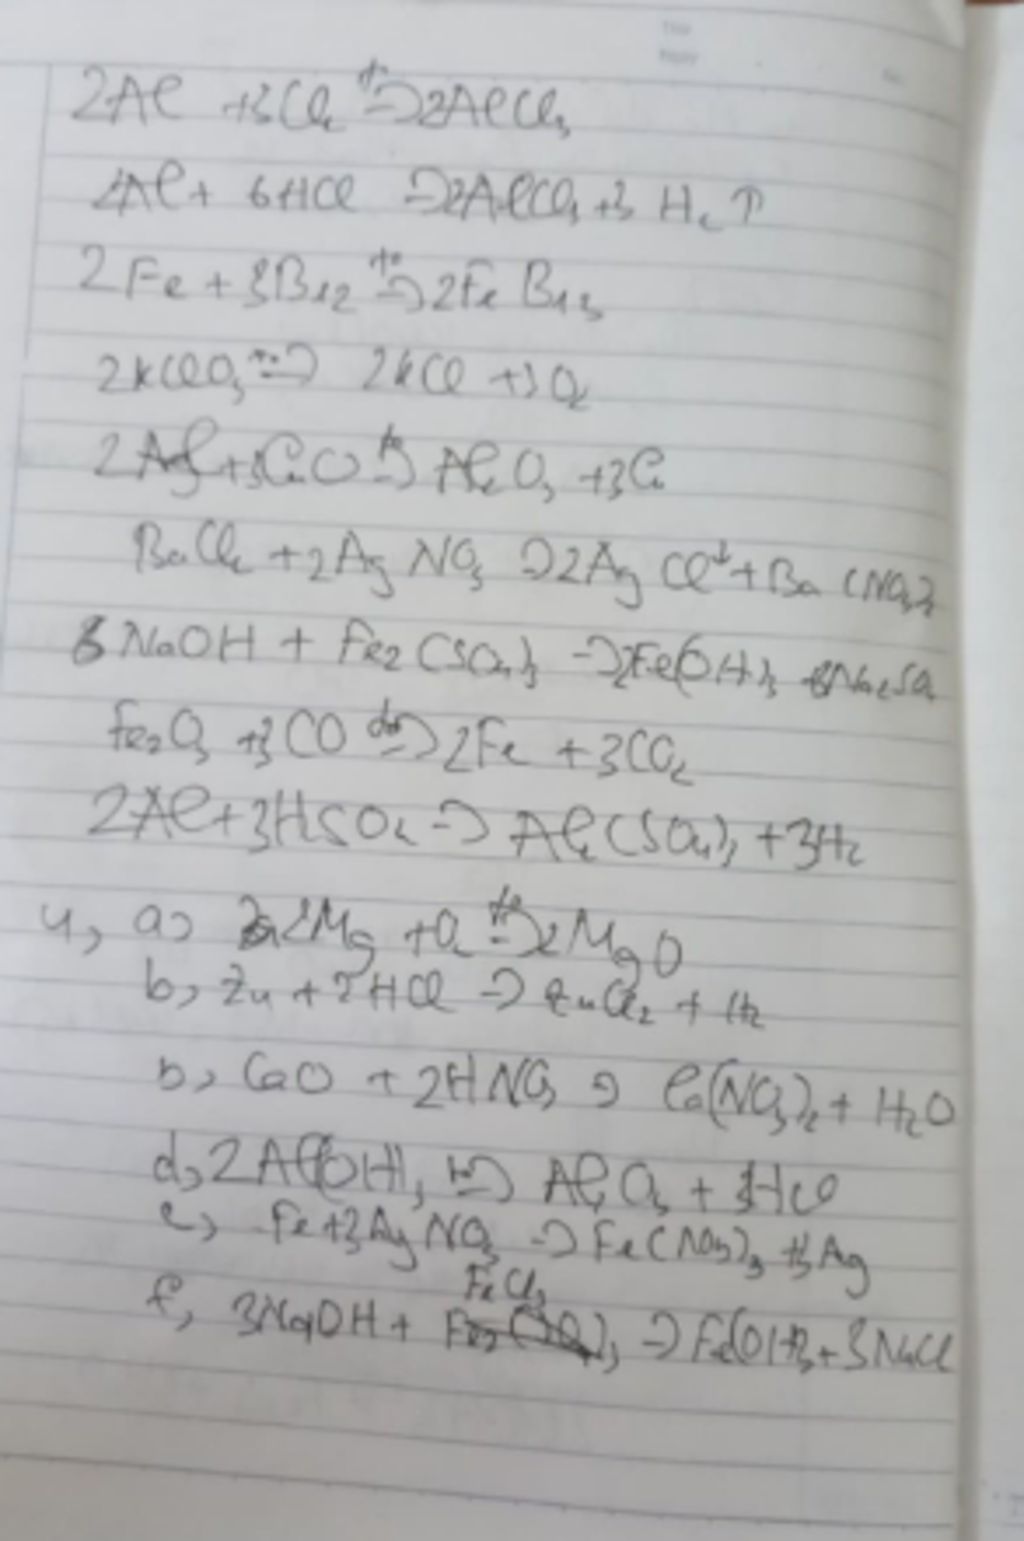 2Al + 3Cl₂ –t°→ 2AlCl₃
2Al + 6HCl → 2AlCl₃ + 3H₂ ↑
2Fe + 3Br₂ –t°→ 2FeBr₃
2KClO₃ –t°→ 2KCl + 3O₂
2Al + 3CuO –t°→ Al₂O₃ + 3Cu
BaCl₂ + 2AgNO₃ → 2AgCl↓ + Ba(NO₃)₂
6NaOH + Fe₂(SO₄)₃ → 2Fe(OH)₃ + 3Na₂SO₄
Fe₂O₃ + 3CO –t°→ 2Fe + 3CO₂
2Al + 3HSO₄ → Al₂(SO₄)₃ + 3H₂
4, a, 2Mg + O₂ –t°→ 2MgO
b, Zn + 2HCl → ZnCl₂ + H₂
b, CaO + 2HNO₃ → Ca(NO₃)₂ + H₂O
d, 2Al(OH)₃ –t°→ Al₂O₃ + 3H₂O
e, Fe + 3AgNO₃ → Fe(NO₃)₃ + 3Ag
FeCl₃
f, 3NaOH + → Fe(OH)₃ + 3NaCl